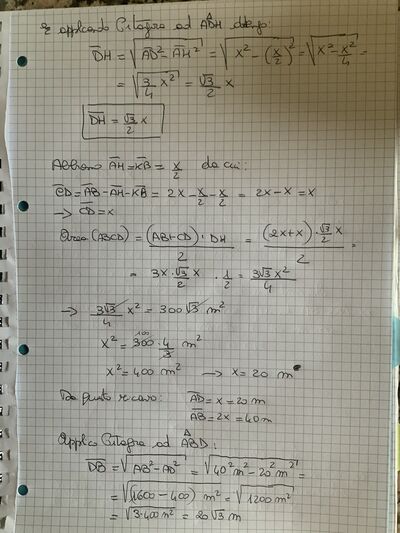 E applicando Pitagora ad ADH ottengo:
DH = √(AD² - AH²) = √(x² - (x/2)²) = √(x² - x²/4) =
= √(3/4 x²) = √3/2 x
DH = √3/2 x
Abbiamo AH = KB = x/2 da cui:
CD = AB - AH - KB = 2x - x/2 - x/2 = 2x - x = x
→ CD = x
Area (ABCD) = (AB + CD) · DH / 2 = (2x + x) · √3/2 x / 2 =
= 3x · √3/2 x · 1/2 = 3√3 x²/4
→ 3√3/4 x² = 300 √3 m²
x² = 300 · 4/3 m² 100
x² = 400 m² → x = 20 m
Da questo ricavo: AD = x = 20 m
AB = 2x = 40 m
Applico Pitagora ad ABD:
DB = √(AB² - AD²) = √(40² m² - 20² m²) =
= √((1600 - 400) m²) = √(1200 m²)
= √(3·400 m²) = 20√3 m